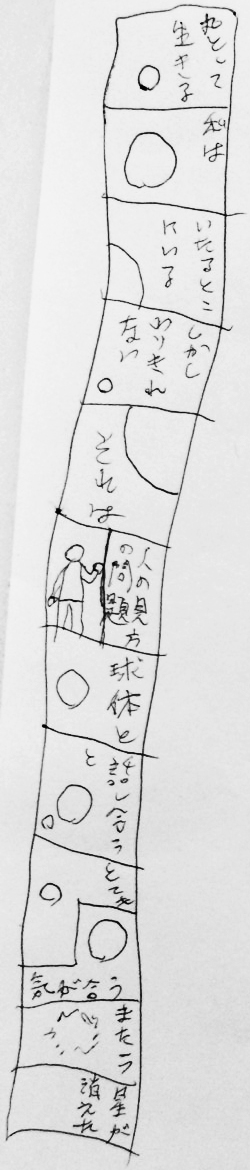 丸として
生きる
私は
いたるとこ
にいる
しかし
わりきれ
ない
それは
人の見方
の問題
球体と
話し合う
と
とても
気が合う
また
星が
消えた